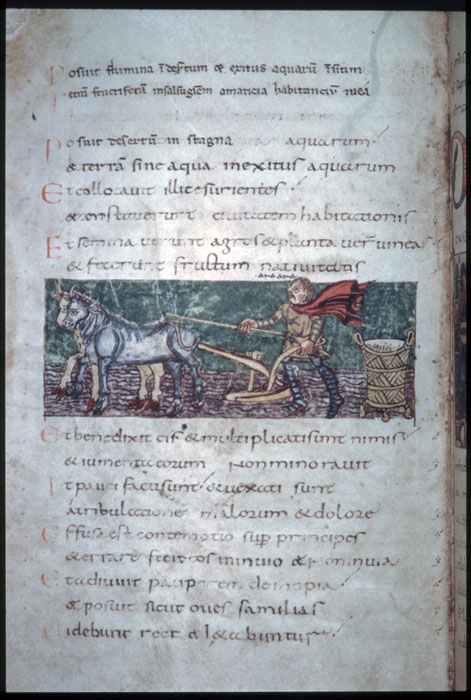 Posuit flumina ī desertum & exitus aquarū ī sitim
Terrā fructiferā in salsuginem a malicia habitanciū in ea
Posuit desertum in stagna aquarum
& terrā sine aqua in exitus aquarum
Et collocauit illic esurientes
& constituerunt ciuitatem habitationis
Et seminauerunt agros & plantauer̄ uineas
& fecerunt fructum natiuitatis
Et benedixit eis & multiplicati sunt nimis
& iumenta eorum non minorauit
Et pauci facti sunt & uexati sunt
a tribulatione malorum & dolore
Effusa est contemptio sup̄ principes
& errare fecit eos in inuio & non in uia
Et adiuuit pauperem de inopia
& posuit sicut oues familias
Uidebunt recti & laetabuntur